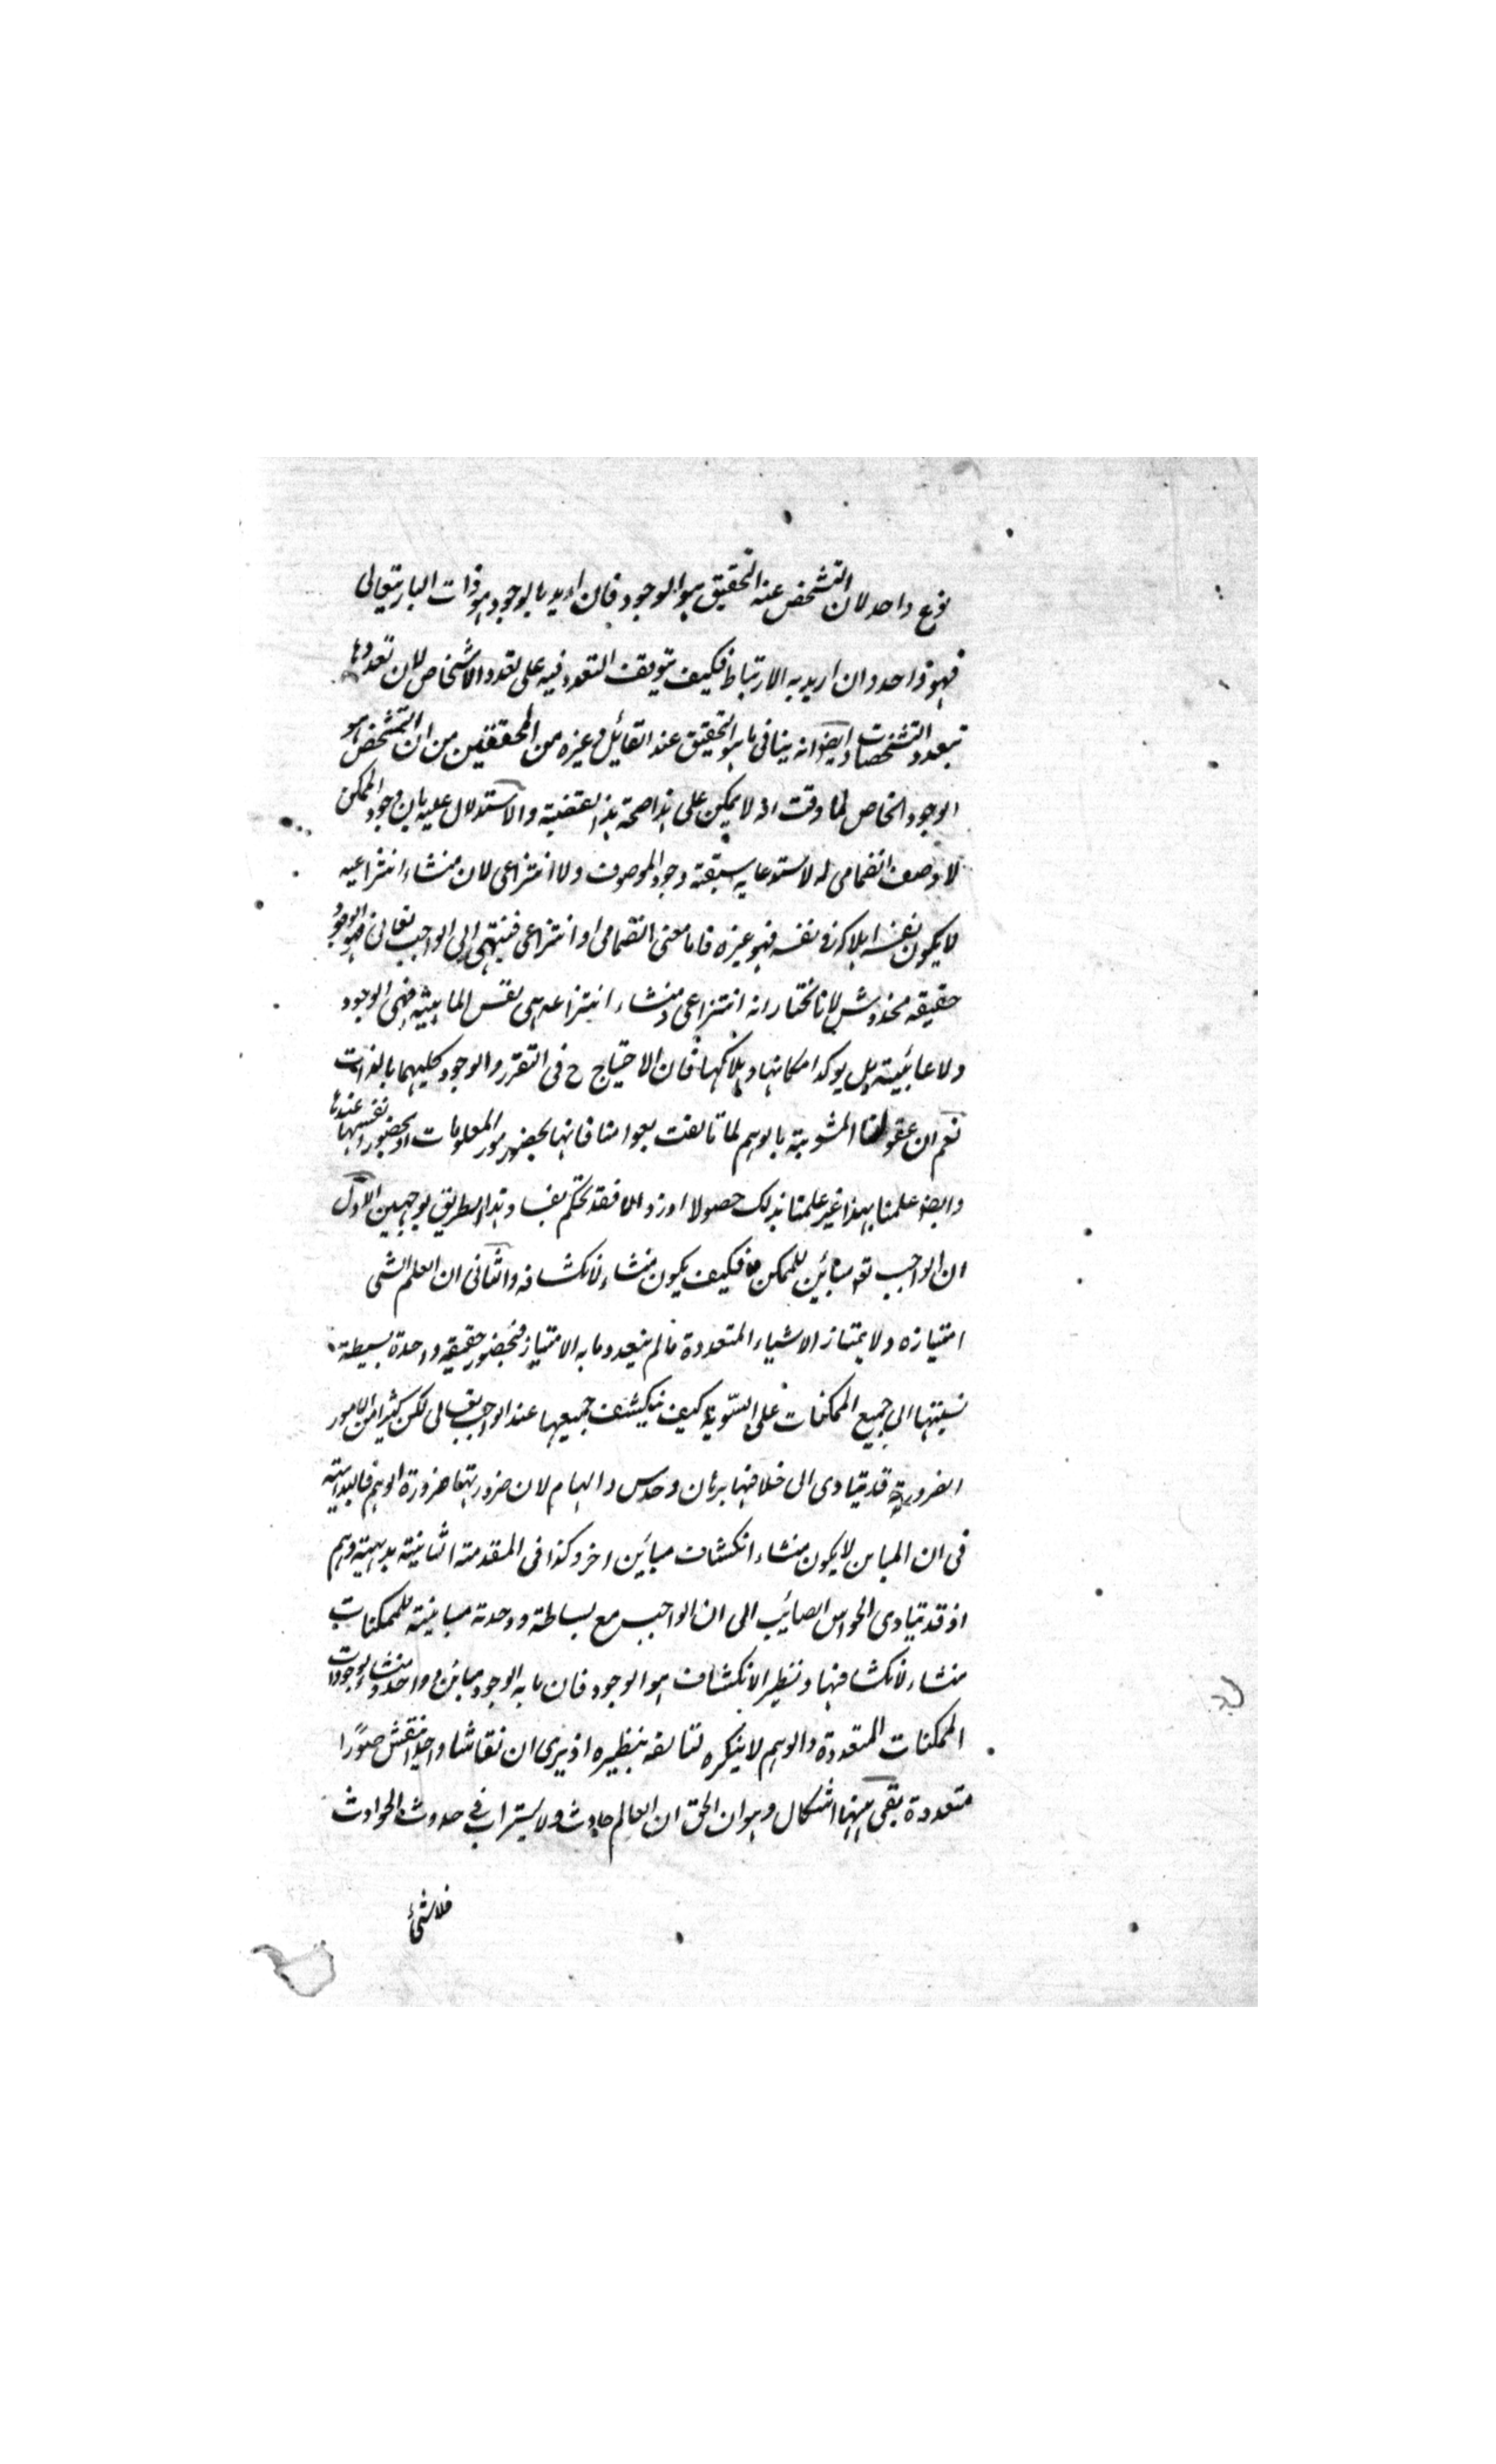 نوع واحد لان التشخص عند التحقيق هو الوجود فان اريد بالوجود هو ذات الباري تعالى
فهو واحد وان اريد به الارتباط فكيف يتوقف التعدد فيه على تعدد الاشخاص لان تعددها
بتعدد التشخصات وايضا انه ينافي ما هو التحقيق عند القائل وغيره من المحققين من ان التشخص هو
الوجود الخاص لما دقت انه لا يمكن على هذا صحة هذا القضية والاستدلال عليه بان وجود الممكن
لا وصف انضمامي له لاستدعايه سبقته وجود الموصوف ولا انتزاعي لان منشاء انتزاعيه
لا يكون نفسه لهلاكه في نفسه فهو غيره فاما معنى انضمامي او انتزاعي فينتهي الى الواجب تعالى فهو الوجود
حقيقه مخدوش لانا نختار انه انتزاعي ومنشاء انتزاعه هي نفس الماهيته فهي الوجود
ولا عائبته بل يوكد امكانها وهلاكها فان الاحتياج ح في التقرر والوجود كليهما بالذات
نعم ان عقولنا المشوبة بالوهم لما تالفت بعوامنا فانها بحضور صور المعلومات او بحضور انفسها عندها
وايضا علمنا بهذا غير علمنا بذلك حصولا او زوالا فقد تحكم بفساد هذا الطريق بوجهين الاول
ان الواجب تع مبائن للممكن فكيف يكون منشاء لانكشافه والثاني ان العلم الشي
امتيازه ولا يمتاز الاشياء المتعددة ما لم يتعدد ما به الامتياز فبحضور حقيقه واحدة بسيطة
نسبتها الى جميع الممكنات على السوية كيف ينكشف جميعها عند الواجب تعالى لكن كثيرا من الامور
الضرورية قد يتادى الى خلافها برهان وحدس والهام لان ضرورتها ضرورة الوهم فالبداهته
في ان المباين لا يكون منشاء انكشاف مبائن اخر وكذا في المقدمته الثانيته بديهيته وهم
اذ قد يتادى الحواس الصائب الى ان الواجب مع بساطته ووحدته مباينته للممكنات
منشاء لانكشافها ونظير الانكشاف هو الوجود فان ما به الوجود مبائن وواحد ومنشاء لوجودات
الممكنات المتعددة والوهم لا ينكره لتالفه بنظيره اذ يرى ان نقاشا واحدا ينقش صورا
متعددة بقي ههنا اشكال وهو ان الحق ان العالم حادث ولا يستراب في حدوث الحوادث
فلا شئ